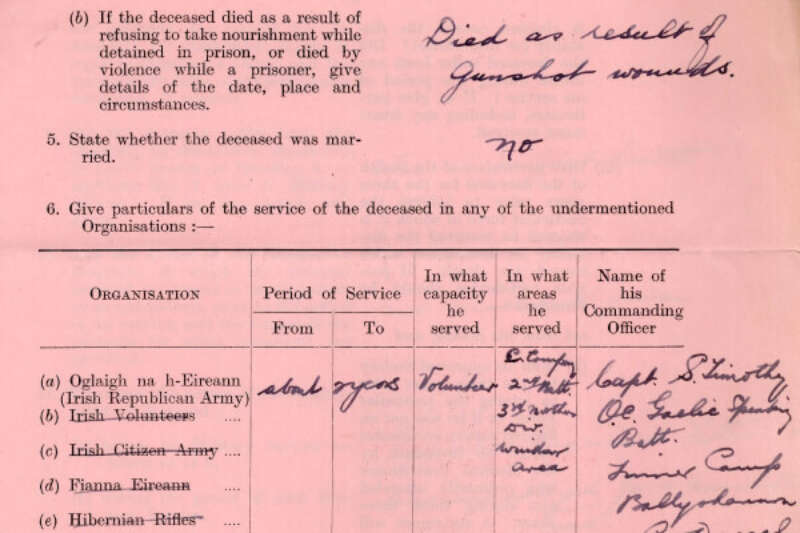 (b) If the deceased died as a result of
refusing to take nourishment while
detained in prison, or died by
violence while a prisoner, give
details of the date, place and
circumstances.
Died as result of
Gunshot wounds.
5. State whether the deceased was mar-
ried.
no
6. Give particulars of the service of the deceased in any of the undermentioned
Organisations :—
ORGANISATION
Period of Service
From
To
In what
capacity
he
served
In what
areas
he
served
Name of
his
Commanding
Officer
(a) Oglaigh na h-Eireann
(Irish Republican Army)
about 2 years
Volunteer
C. Company
2nd Batt.
3rd Northern
Div.
Windsor
area
Capt. S. Timothy
O.C. Gaelic Speaking
Batt.
Finner Camp
Ballyshannon
(b) Irish Volunteers ....
(c) Irish Citizen Army ....
(d) Fianna Eireann ....
(e) Hibernian Rifles ....